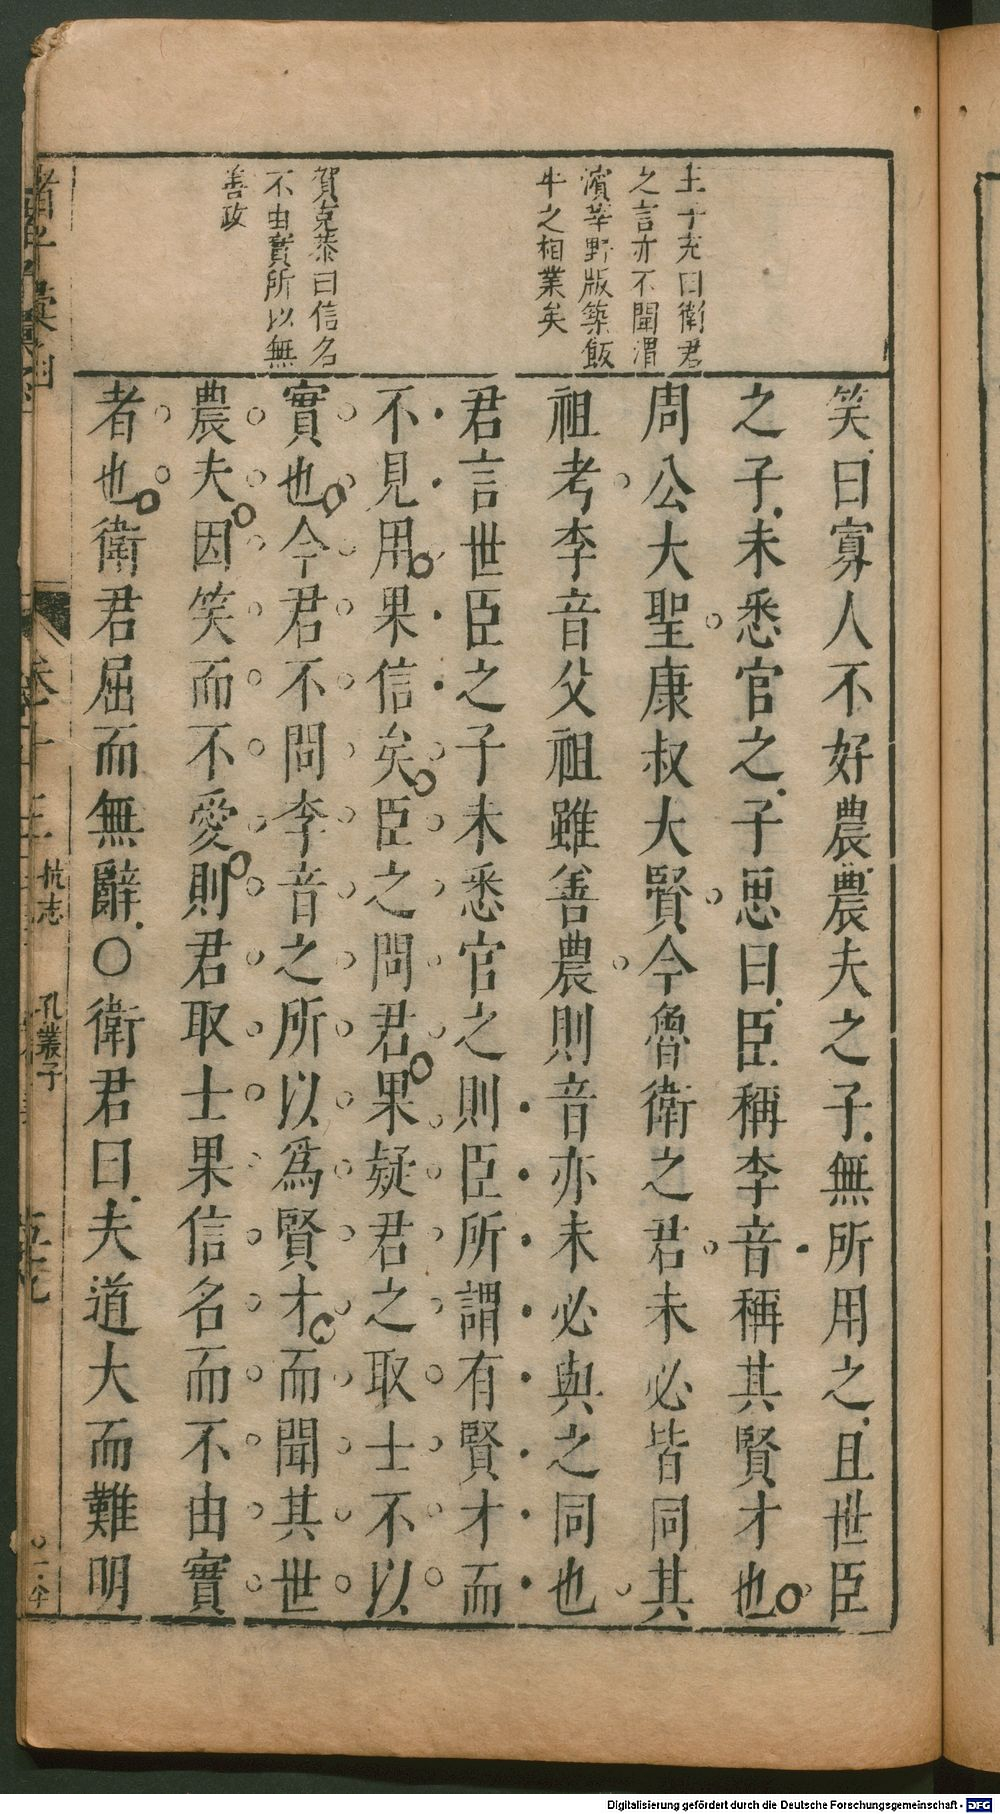 王子充曰衛君
之言亦不聞渭
濱莘野版築飯
牛之相業矣
賀克恭曰信名
不由實所以無
善政
笑曰寡人不好農農夫之子無所用之且世臣
之子未悉官之子思曰臣稱李音稱其賢才也
周公大聖康叔大賢今魯衛之君未必皆同其
祖考李音父祖雖善農則音亦未必與之同也
君言世臣之子未悉官之則臣所謂有賢才而
不見用果信矣臣之問君果疑君之取士不以
實也今君不問李音之所以爲賢才而聞其世
農夫因笑而不愛則君取士果信名而不由實
者也衛君屈而無辭〇衛君曰夫道大而難明
卷十三 抗志 孔叢子
Digitalisierung gefördert durch die Deutsche Forschungsgemeinschaft - DFG